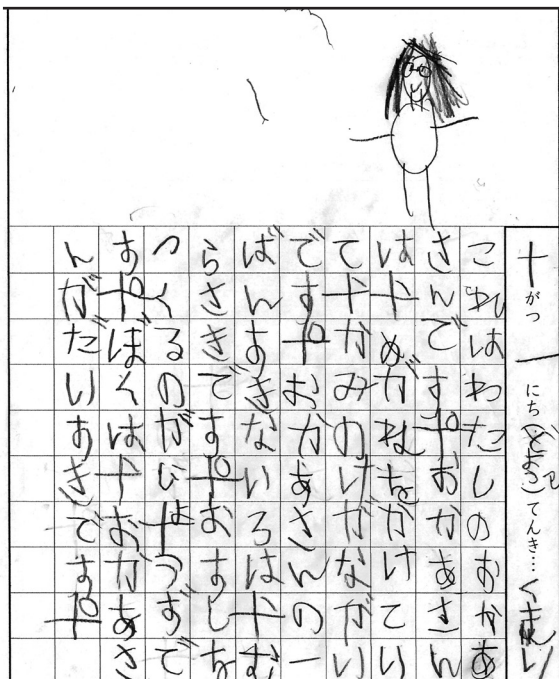 十がつ一にち(どよう日)てんき…くもり
これはわたしのおかあ
さんです。おかあさん
は、めがねをかけてい
て、かみのけがながい
です。おかあさんの一
ばんすきないろは、む
らさきです。おすしを
つくるのがじょうずで
す。ぼくは、おかあさ
んがだいすきです。